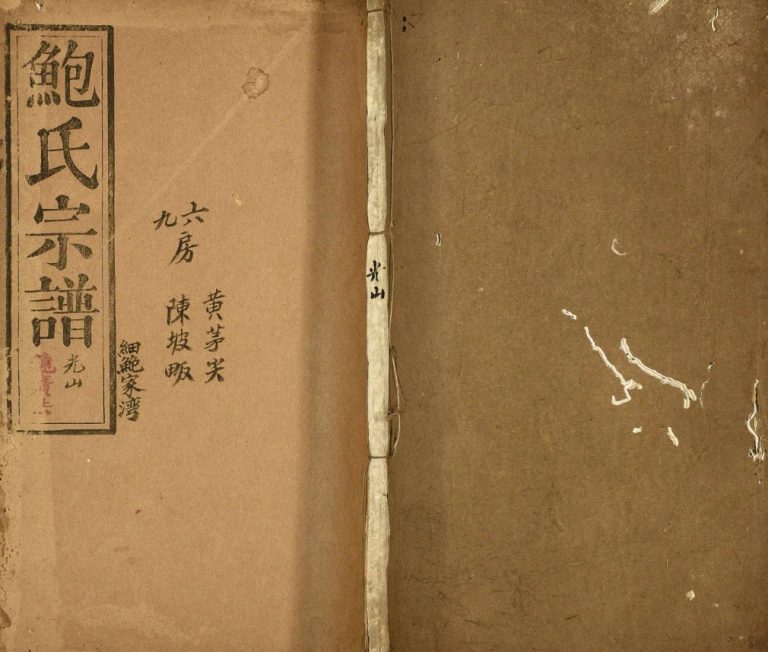 鮑氏宗譜
光山
細鮑家湾
六九房
黄茅尖
陳坡畈
光山